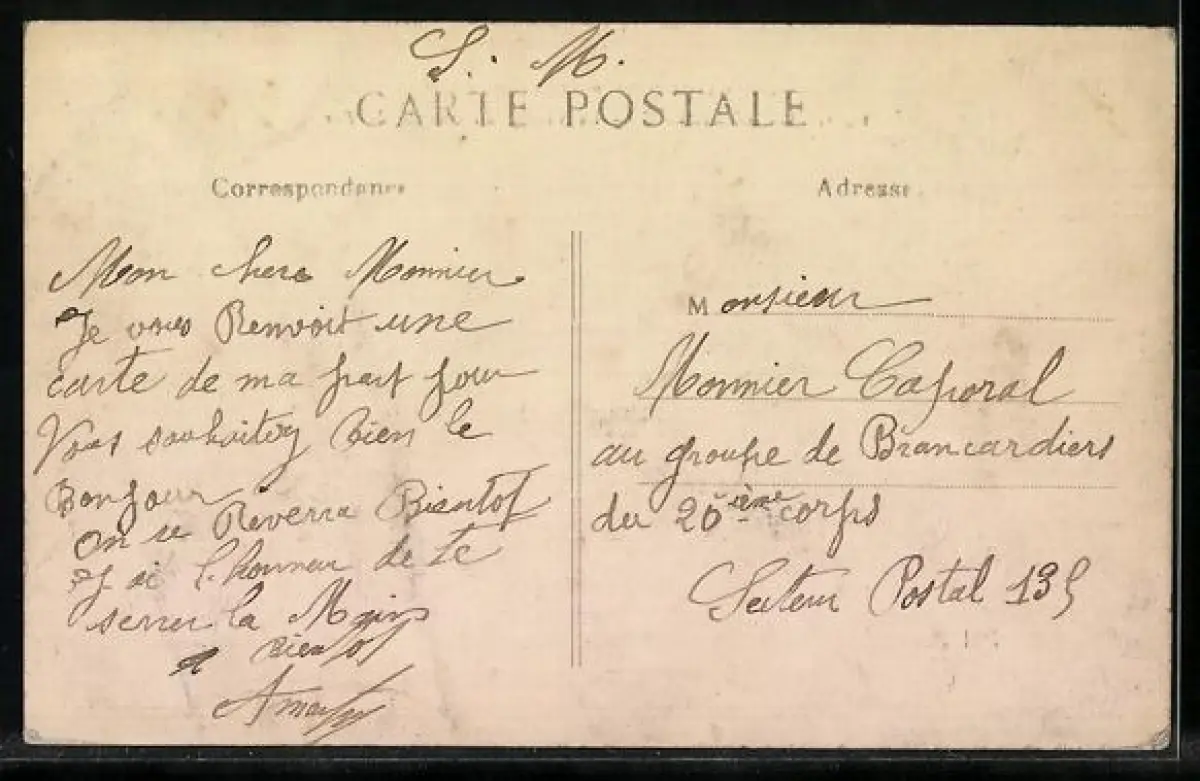 S. M.
CARTE POSTALE
Correspondance
Adresse
Mon chere Monnier
Je vous Renvoit une
carte de ma part pour
Vous souhaitez Bien le
Bonjour
on se Reverra Bientot
J ai l'honneur de te
serrer la Main
a Bientot
Monsieur
Monnier Caporal
au groupe de Brancardiers
du 20ième corps
Secteur Postal 135